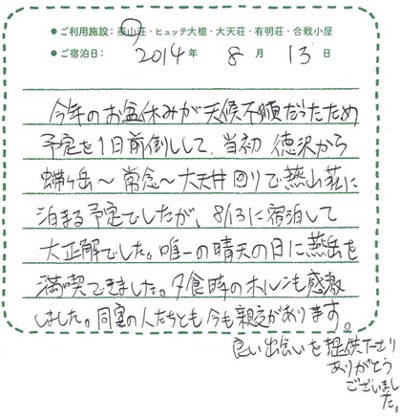 ●ご利用施設：燕山荘・ヒュッテ大槍・大天荘・有明荘・合戦小屋
●ご宿泊日：2014年 8月 13日
今年のお盆休みが天候不順だったため
予定を1日前倒しして、当初 徳沢から
蝶ヶ岳～常念～大天井回りで燕山荘に
泊まる予定でしたが、8/13に宿泊して
大正解でした。唯一の晴天の日に燕岳を
満喫できました。夕食時のホルンも感激
しました。同室の人たちとも今も親交があります。
良い出会いを提供下さり
ありがとう
ございまし
た。